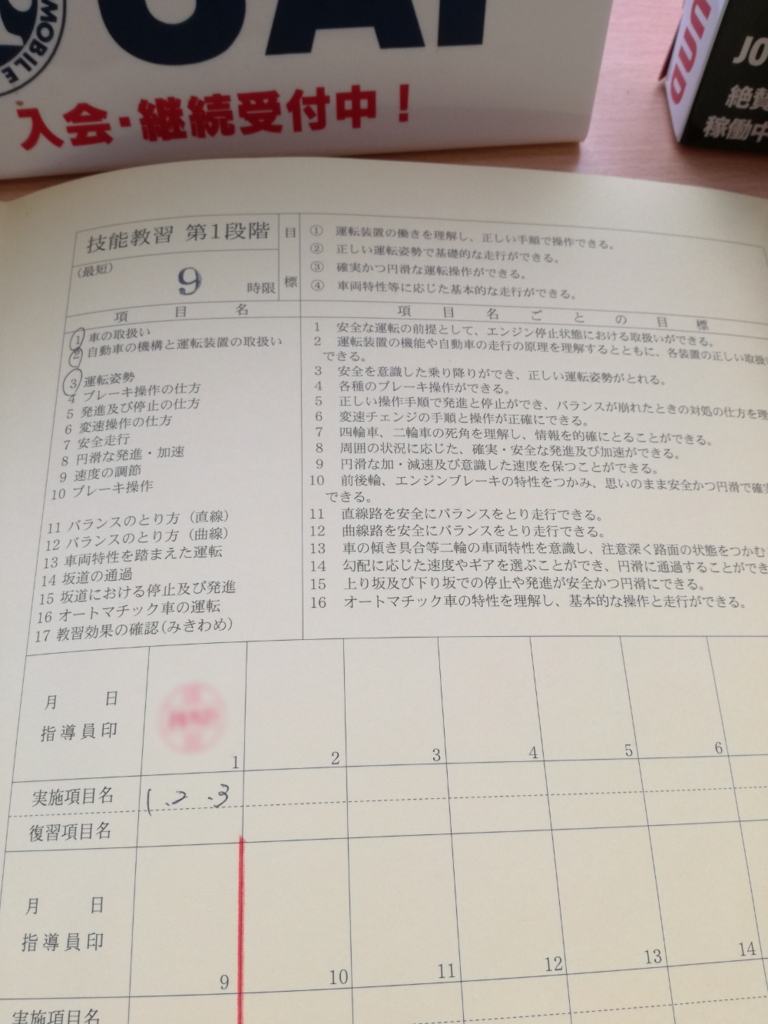 MOBILE
入会・継続受付中！
JO
絶賛
稼働中
技能教習 第1段階
（最短）
9
時限
目標
① 運転装置の働きを理解し、正しい手順で操作できる。
② 正しい運転姿勢で基礎的な走行ができる。
③ 確実かつ円滑な運転操作ができる。
④ 車両特性等に応じた基本的な走行ができる。
項目名
項目名ごとの目標
1 車の取扱い
2 自動車の機構と運転装置の取扱い
3 運転姿勢
4 ブレーキ操作の仕方
5 発進及び停止の仕方
6 変速操作の仕方
7 安全走行
8 円滑な発進・加速
9 速度の調節
10 ブレーキ操作
11 バランスのとり方（直線）
12 バランスのとり方（曲線）
13 車両特性を踏まえた運転
14 坂道の通過
15 坂道における停止及び発進
16 オートマチック車の運転
17 教習効果の確認（みきわめ）
1 安全な運転の前提として、エンジン停止状態における取扱いができる。
2 運転装置の機能や自動車の走行の原理を理解するとともに、各装置の正しい取扱
できる。
3 安全を意識した乗り降りができ、正しい運転姿勢がとれる。
4 各種のブレーキ操作ができる。
5 正しい操作手順で発進と停止ができ、バランスが崩れたときの対処の仕方を理
6 変速チェンジの手順と操作が正確にできる。
7 四輪車、二輪車の死角を理解し、情報を的確にとることができる。
8 周囲の状況に応じた、確実・安全な発進及び加速ができる。
9 円滑な加・減速及び意識した速度を保つことができる。
10 前後輪、エンジンブレーキの特性をつかみ、思いのまま安全かつ円滑で確実
できる。
11 直線路を安全にバランスをとり走行できる。
12 曲線路を安全にバランスをとり走行できる。
13 車の傾き具合等二輪の車両特性を意識し、注意深く路面の状態をつかむ
14 勾配に応じた速度やギアを選ぶことができ、円滑に通過することができ
15 上り坂及び下り坂での停止や発進が安全かつ円滑にできる。
16 オートマチック車の特性を理解し、基本的な操作と走行ができる。
月 日
指導員印
1 2 3 4 5 6
実施項目名 1.2.3
復習項目名
月 日
指導員印
9 10 11 12 13 14
実施項目名